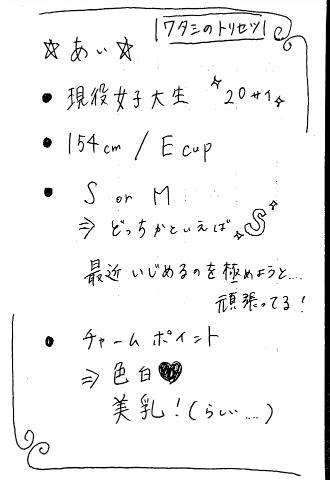 ワタシのトリセツ
☆あい☆
● 現役女子大生 20才
● 154cm / E cup
● S or M
⇒ どっちかといえばS
最近いじめるのを極めようと…
頑張ってる!
● チャームポイント
⇒ 色白♥
美乳!(らしい…)